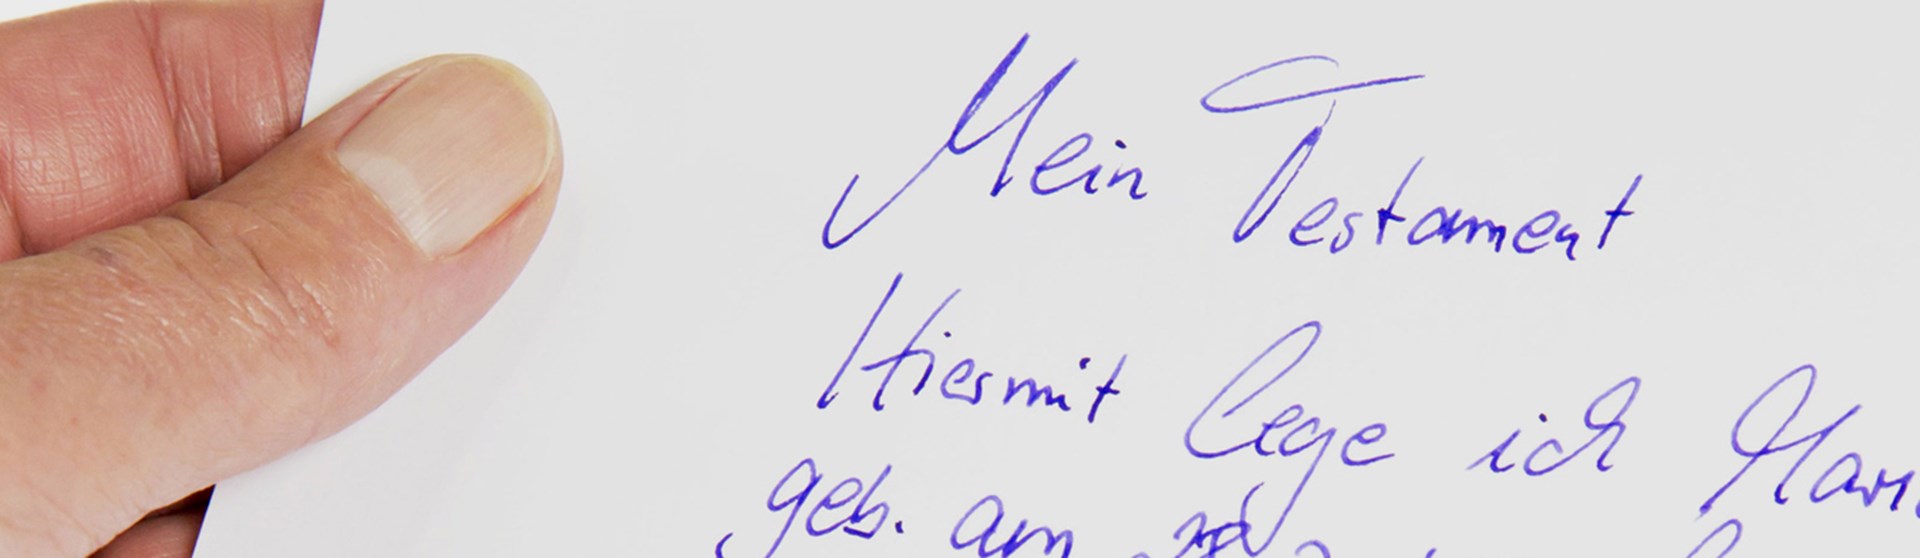 Mein Testament
Hiermit lege ich
geb. am